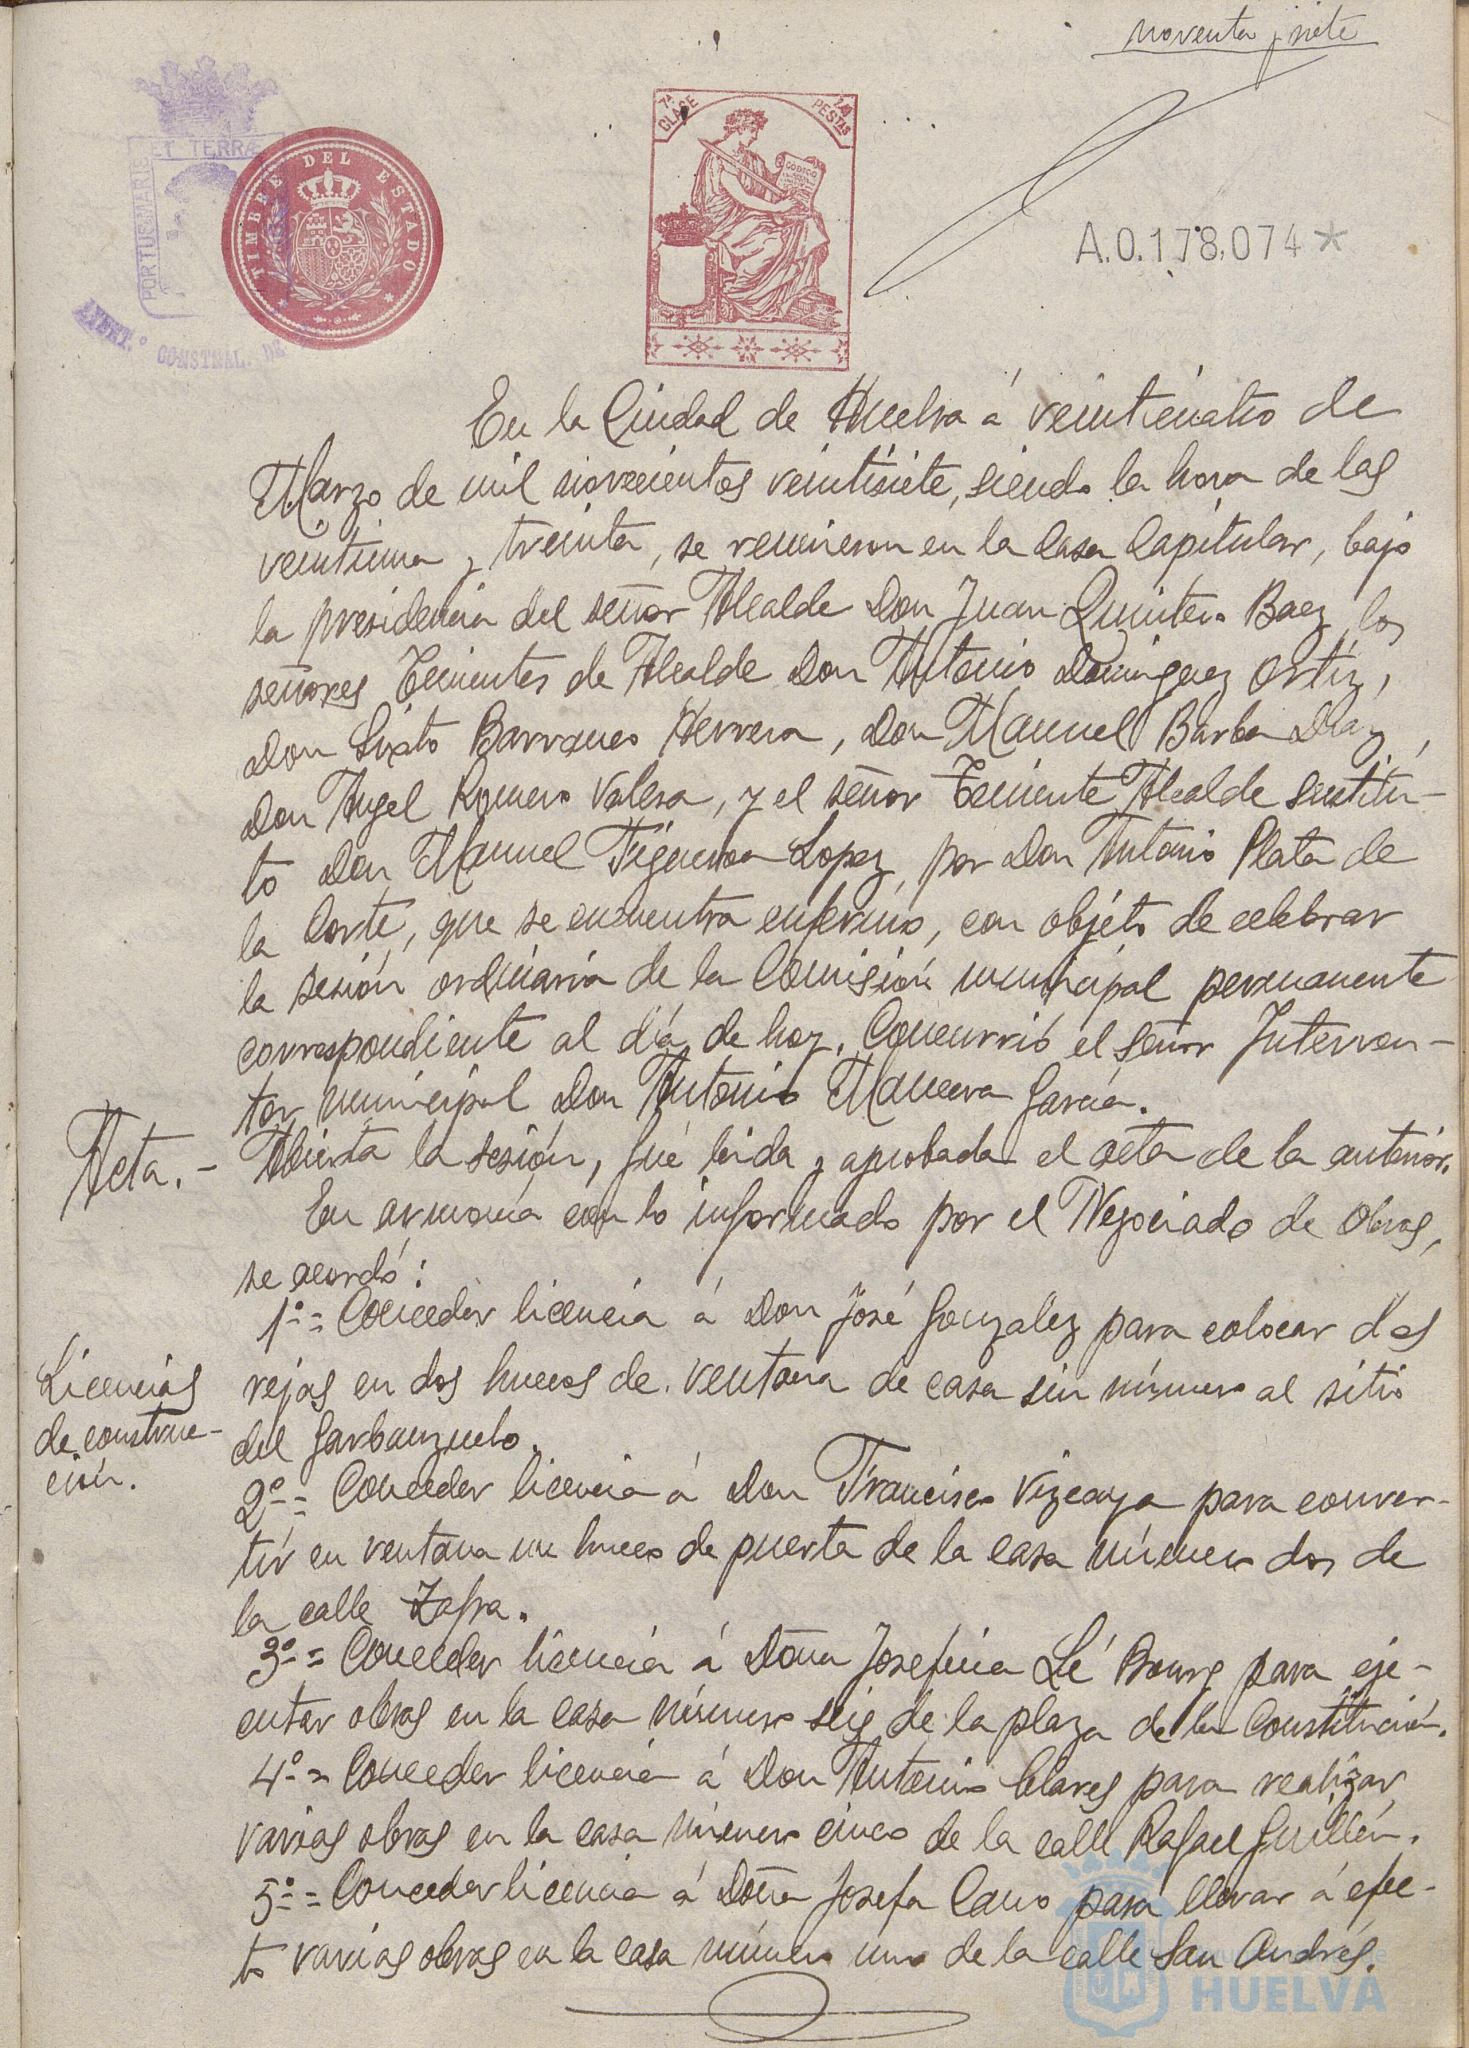 noventa y siete
ET TERRÆ
PORTUS MARIS
AYUNT.º CONSTNAL. DE
TIMBRE DEL ESTADO
7ª CLASE
PESTAS
CODIGO
A.0.178.074*
En la Ciudad de Huelva á veinticuatro de
Marzo de mil novecientos veintisiete, siendo la hora de las
veintiuna y treinta, se reunieron en la Casa Capitular, bajo
la presidencia del señor Alcalde Don Juan Quintero Baez, los
señores Tenientes de Alcalde Don Antonio Dominguez Ortíz,
Don Sixto Barranco Herrera, Don Manuel Barba Diaz,
Don Angel Romero Valera, y el señor Teniente Alcalde sustitu-
to Don Manuel Figueroa Lopez, por Don Antonio Plata de
la Corte, que se encuentra enfermo, con objéto de celebrar
la sesión ordinaria de la Comisión municipal permanente
correspondiente al día de hoy. Concurrió el señor Interven-
tor municipal Don Antonio Mancera García.
Acta.- Abierta la sesión, fué leida y aprobada el acta de la anterior.
En armonía con lo informado por el Negociado de Obras,
se acordó:
1º= Conceder licencia á Don José Gonzalez para colocar dos
Licencias
de construc-
ción.
rejas en dos huecos de ventana de casa sin número al sitio
del Garbanzuelo.
2º= Conceder licencia á Don Francisco Vizcaya para conver-
tir en ventana un hueco de puerta de la casa número dos de
la calle Zafra.
3º= Conceder licencia á Doña Josefina Lé Bourg para eje-
cutar obras en la casa número seis de la plaza de la Constitución.
4º= Conceder licencia á Don Antonio Clares para realizar
varias obras en la casa número cinco de la calle Rafael Guillén.
5º= Conceder licencia á Doña Josefa Cano para llevar á efec-
to varias obras en la casa número uno de la calle San Andrés.
HUELVA